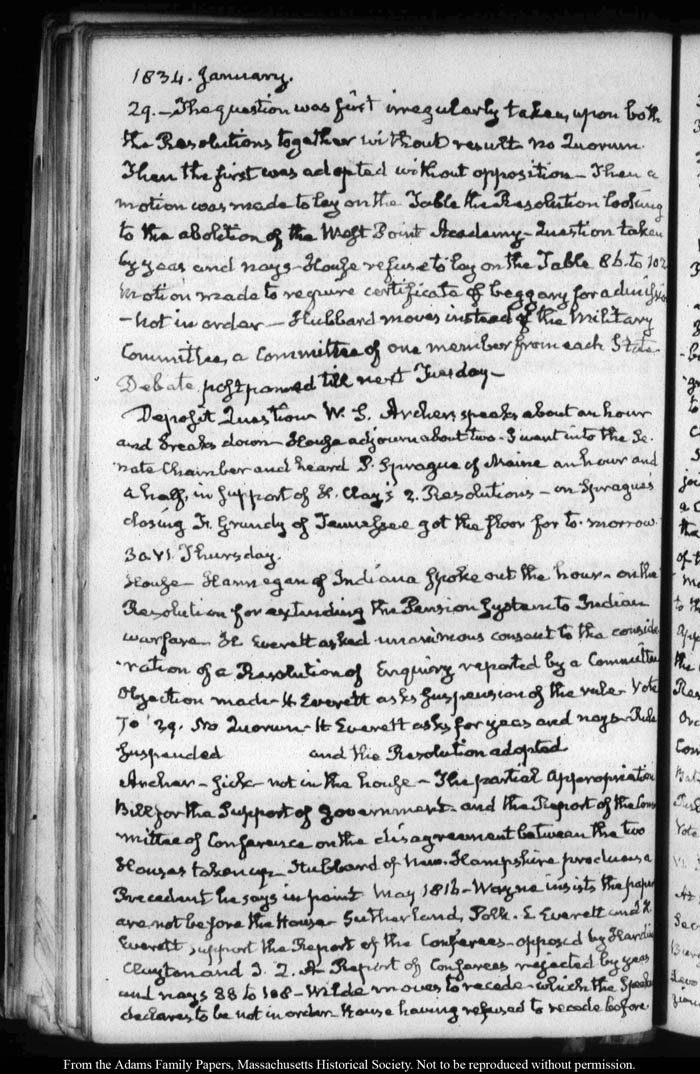 1834. January.
29. The question was first irregularly taken, upon both
the Resolutions together without result no Quorum.
Then the first was adopted without opposition — Then a
motion was made to lay on the Table the Resolution looking
to the abolition of the West Point Academy — Question taken
by yeas and nays — House refuse to lay on the Table 86. to 102
Motion made to require certificate of beggary for admission
— Not in order — Hubbard moves instead of the Military
Committee, a Committee of one member from each State.
Debate postponed till next Tuesday —
Deposit Question W. S. Archer speaks about an hour
and breaks down — House adjourn about two. I went into the Se-
nate Chamber and heard P. Sprague of Maine an hour and
a half, in support of H. Clay's 2. Resolutions — on Sprague's
closing F. Grundy of Tennessee got the floor for to-morrow.
30. VI. Thursday.
House — Hannegan of Indiana spoke out the hour on the
Resolution for extending the Pension System to Indian
warfare. H. Everett asked unanimous consent to the conside-
ration of a Resolution of Enquiry reported by a Committee
Objection made — H. Everett asks suspension of the rule — Vote
70 39. No Quorum — H Everett asks for yeas and nays — Rule
suspended and the Resolution adopted
Archer — sick — not in the house — The partial appropriation
Bill for the Support of government — and the Report of the Com-
mittee of Conference on the disagreement between the two
Houses taken up — Hubbard of New-Hampshire produces a
Precedent he says in point May 1816 — Wayne insists the papers
are not before the House — Sutherland, Polk. E Everett and H.
Everett, support the Report of the Conferees — opposed by Hardin
Clayton and J. Q. A — Report of Conferees rejected by yeas
and nays 88 to 108 — Wilde moves to recede — which the Speaker
declares to be not in order House having refused to recede before
From the Adams Family Papers, Massachusetts Historical Society. Not to be reproduced without permission.